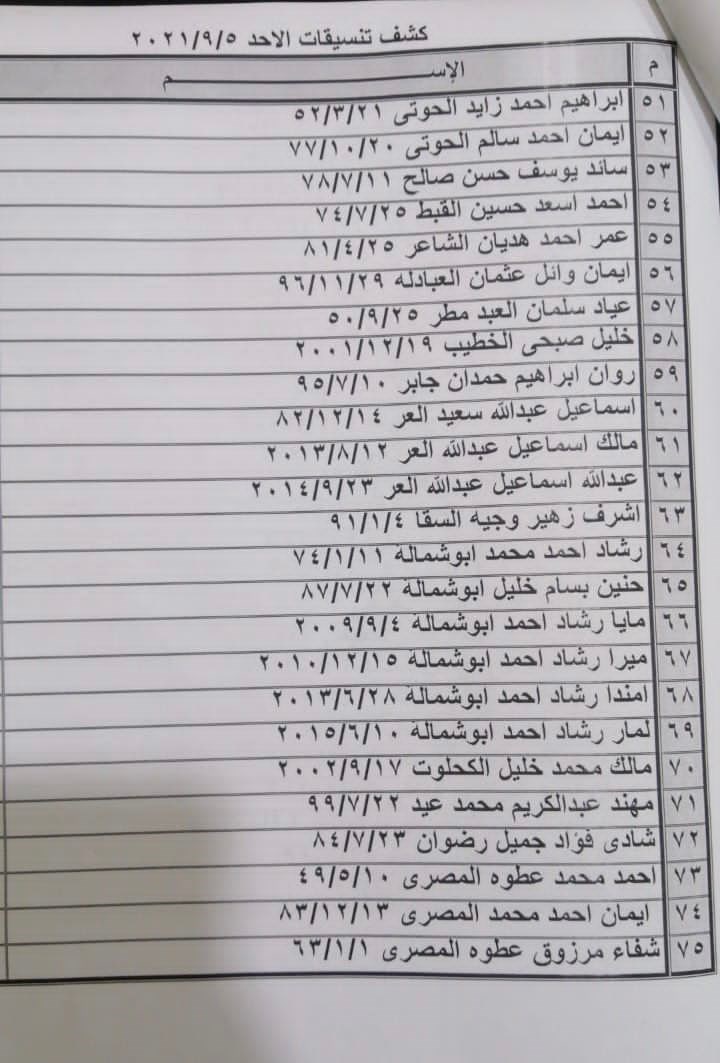 كشف تنسيقات الاحد ٢٠٢١/٩/٥
م الإســـــــــم
٥١ ابراهيم احمد زايد الحوتى ٥٢/٣/٢١
٥٢ ايمان احمد سالم الحوتى ٧٧/١٠/٢٠
٥٣ سائد يوسف حسن صالح ٧٨/٧/١١
٥٤ احمد اسعد حسين القبط ٧٤/٧/٢٥
٥٥ عمر احمد هديان الشاعر ٨١/٤/٢٥
٥٦ ايمان وائل عثمان العبادله ٩٦/١١/٢٩
٥٧ عياد سلمان العبد مطر ٥٠/٩/٢٥
٥٨ خليل صبحى الخطيب ٢٠٠١/١٢/١٩
٥٩ روان ابراهيم حمدان جابر ٩٥/٧/١٠
٦٠ اسماعيل عبدالله سعيد العر ٨٢/١٢/١٤
٦١ مالك اسماعيل عبدالله العر ٢٠١٣/٨/١٢
٦٢ عبدالله اسماعيل عبدالله العر ٢٠١٤/٩/٢٣
٦٣ اشرف زهير وجيه السقا ٩١/١/٤
٦٤ رشاد احمد محمد ابوشمالة ٧٤/١/١١
٦٥ حنين بسام خليل ابوشمالة ٨٧/٧/٢٢
٦٦ مايا رشاد احمد ابوشمالة ٢٠٠٩/٩/٤
٦٧ ميرا رشاد احمد ابوشمالة ٢٠١٠/١٢/١٥
٦٨ امندا رشاد احمد ابوشمالة ٢٠١٣/٦/٢٨
٦٩ لمار رشاد احمد ابوشمالة ٢٠١٥/٦/١٠
٧٠ مالك محمد خليل الكحلوت ٢٠٠٢/٩/١٧
٧١ مهند عبدالكريم محمد عيد ٩٩/٧/٢٢
٧٢ شادى فؤاد جميل رضوان ٨٤/٧/٢٣
٧٣ احمد محمد عطوه المصرى ٤٩/٥/١٠
٧٤ ايمان احمد محمد المصرى ٨٣/١٢/١٣
٧٥ شفاء مرزوق عطوه المصرى ٦٣/١/١